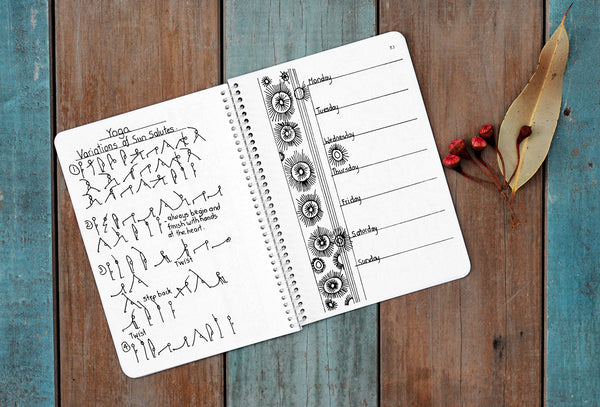 Yoga
Variations of Sun Salutes
1
2
always begin and
finish with hands
at the heart.
3
Twist
step back
Twist
4
Monday
Tuesday
Wednesday
Thursday
Friday
Saturday
Sunday